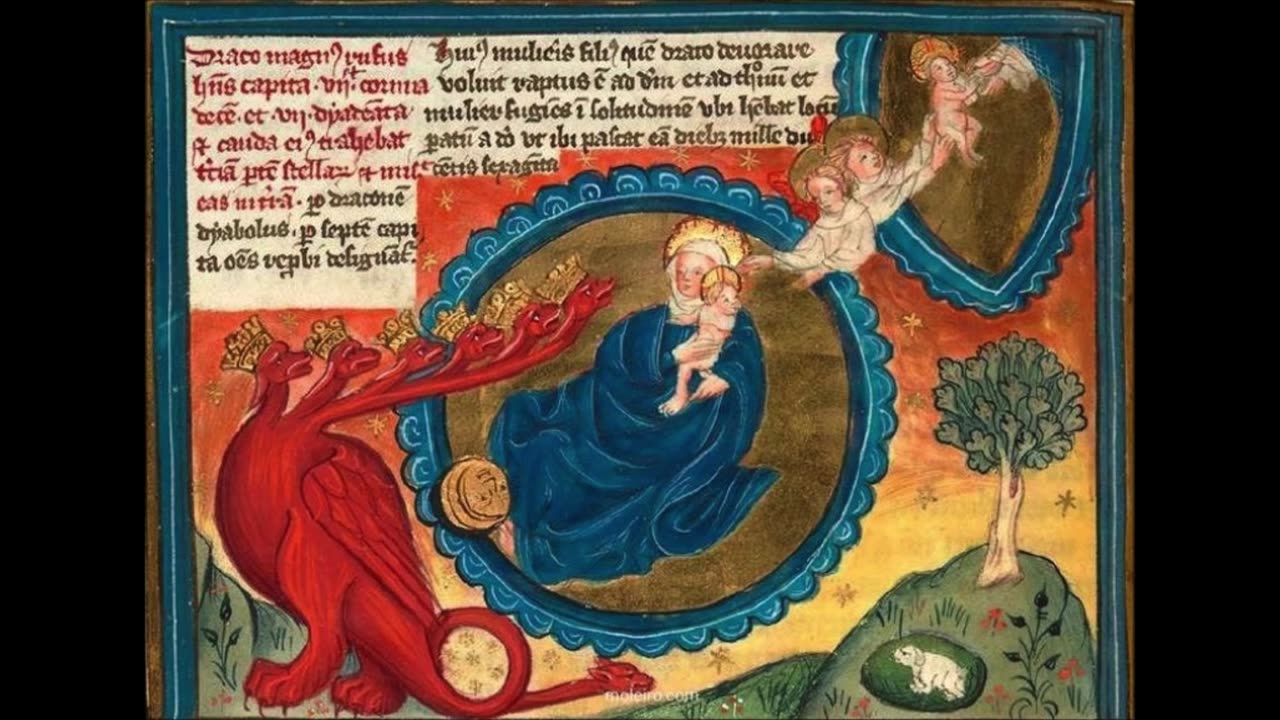 Draco magnꝰ rufus
hñs capita · vii · cornua
decē · et · vii · dyademata
⁊ cauda eiꝰ trahebat
t̃ciā ptē stellaꝝ ⁊ misit
eas in t̃rā · ꝑ draconē
dyabolus · ꝑ septē capi
ta oēs
designāt̃.
Huiꝰ mulieris filiꝰ quē draco deuorare
voluit raptus ē ad dm̄ et ad thronū et
mulier fugiēs ī solitudinē vbi hēbat locū
patū a dō vt ibi pascat eā diebꝫ mille du
cētis sexagīta
moleiro.com